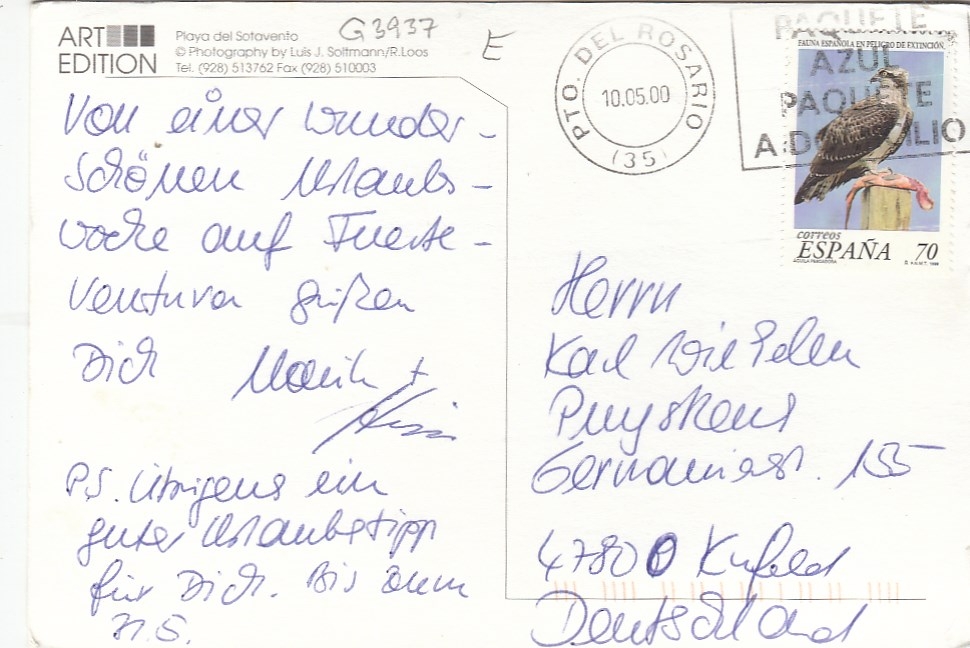 ART
EDITION
Playa del Sotavento
© Photography by Luis J. Soltmann/R.Loos
Tel. (928) 513762 Fax (928) 510003
G3937
E
PTO. DEL ROSARIO
10.05.00
(35)
PAQUETE
AZUL
PAQUETE
A DOMICILIO
FAUNA ESPAÑOLA EN PELIGRO DE EXTINCIÓN.
correos
ESPAÑA 70
Von einer wunder-
schönen Urlaubs-
woche auf Fuerte-
ventura grüßen
Dich
P.S. Übrigens ein
guter Urlaubstipp
für Dich. Bis zum
Herrn
Karl Wilhelm
Puyskens
Germaniastr. 155
47800 Krefeld
Deutschland